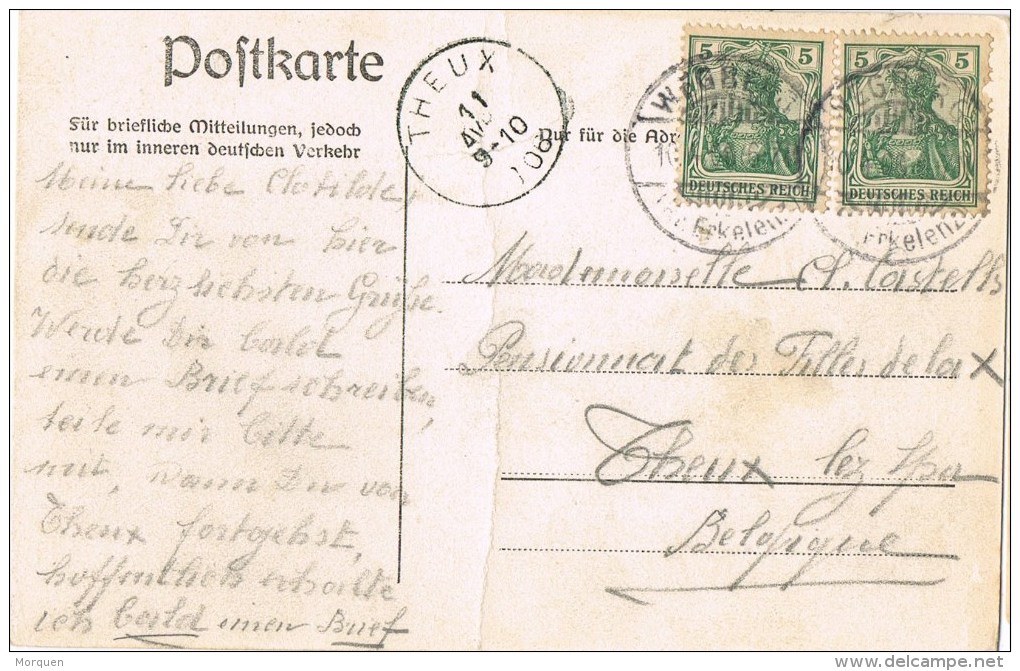 Postkarte
Für briefliche Mitteilungen, jedoch
nur im inneren deutschen Verkehr
Nur für die Adr
THEUX
11
9-10
1908
5 5
DEUTSCHES REICH
5 5
DEUTSCHES REICH
Erkelenz
Erkelenz
Meine liebe Clotilde,
sende Dir von hier
die herzlichsten Grüße.
Werde Dir bald
einen Brief schreiben,
teile mir bitte
mit, wann Du von
Theux fortgehst,
hoffentlich erhalte
ich bald einen Brief
Mademoiselle Cl. Castells
Pensionnat des Filles de la X
Theux lez Spa
Belgique
Morquen
delcampe.net